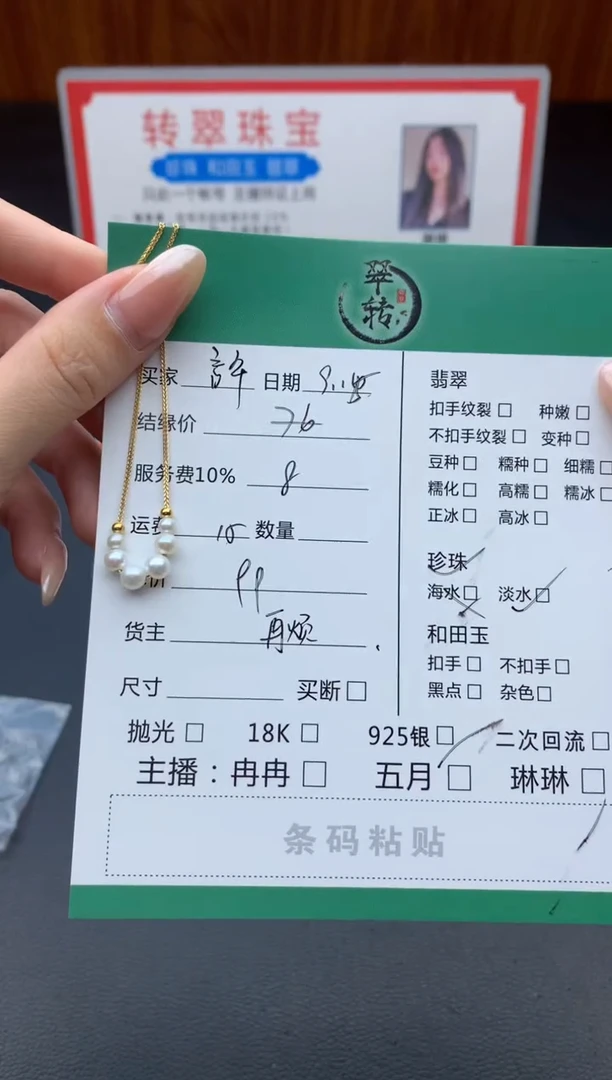 转翠珠宝
珍珠 和田玉 翡翠
翠转
买家 日期 9.15
结缘价 76
服务费10% 8
运费 15 数量
价 99
货主 再烦
尺寸 买断 □
翡翠
扣手纹裂 □ 种嫩 □
不扣手纹裂 □ 变种 □
豆种 □ 糯种 □ 细糯 □
糯化 □ 高糯 □ 糯冰 □
正冰 □ 高冰 □
珍珠
海水 □ 淡水 □
和田玉
扣手 □ 不扣手 □
黑点 □ 杂色 □
抛光 □ 18K □ 925银 □ 二次回流 □
主播：冉冉 □ 五月 □ 琳琳 □
条码粘贴